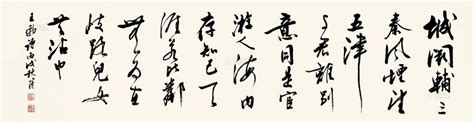 城闕輔三
秦風煙望
五津
与君離別
意同是宦
遊人海内
存知己天
涯若比鄰
無為在
歧路兒女
共沾巾
王勃詩